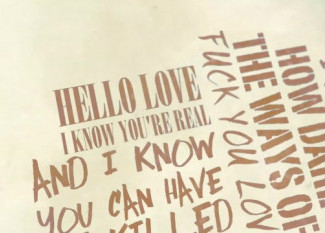 HELLO LOVE
I KNOW YOU'RE REAL
AND I KNOW
YOU CAN HAVE
KILLED
FUCK YOU LOV
THE WAYS OF
HOW DAR